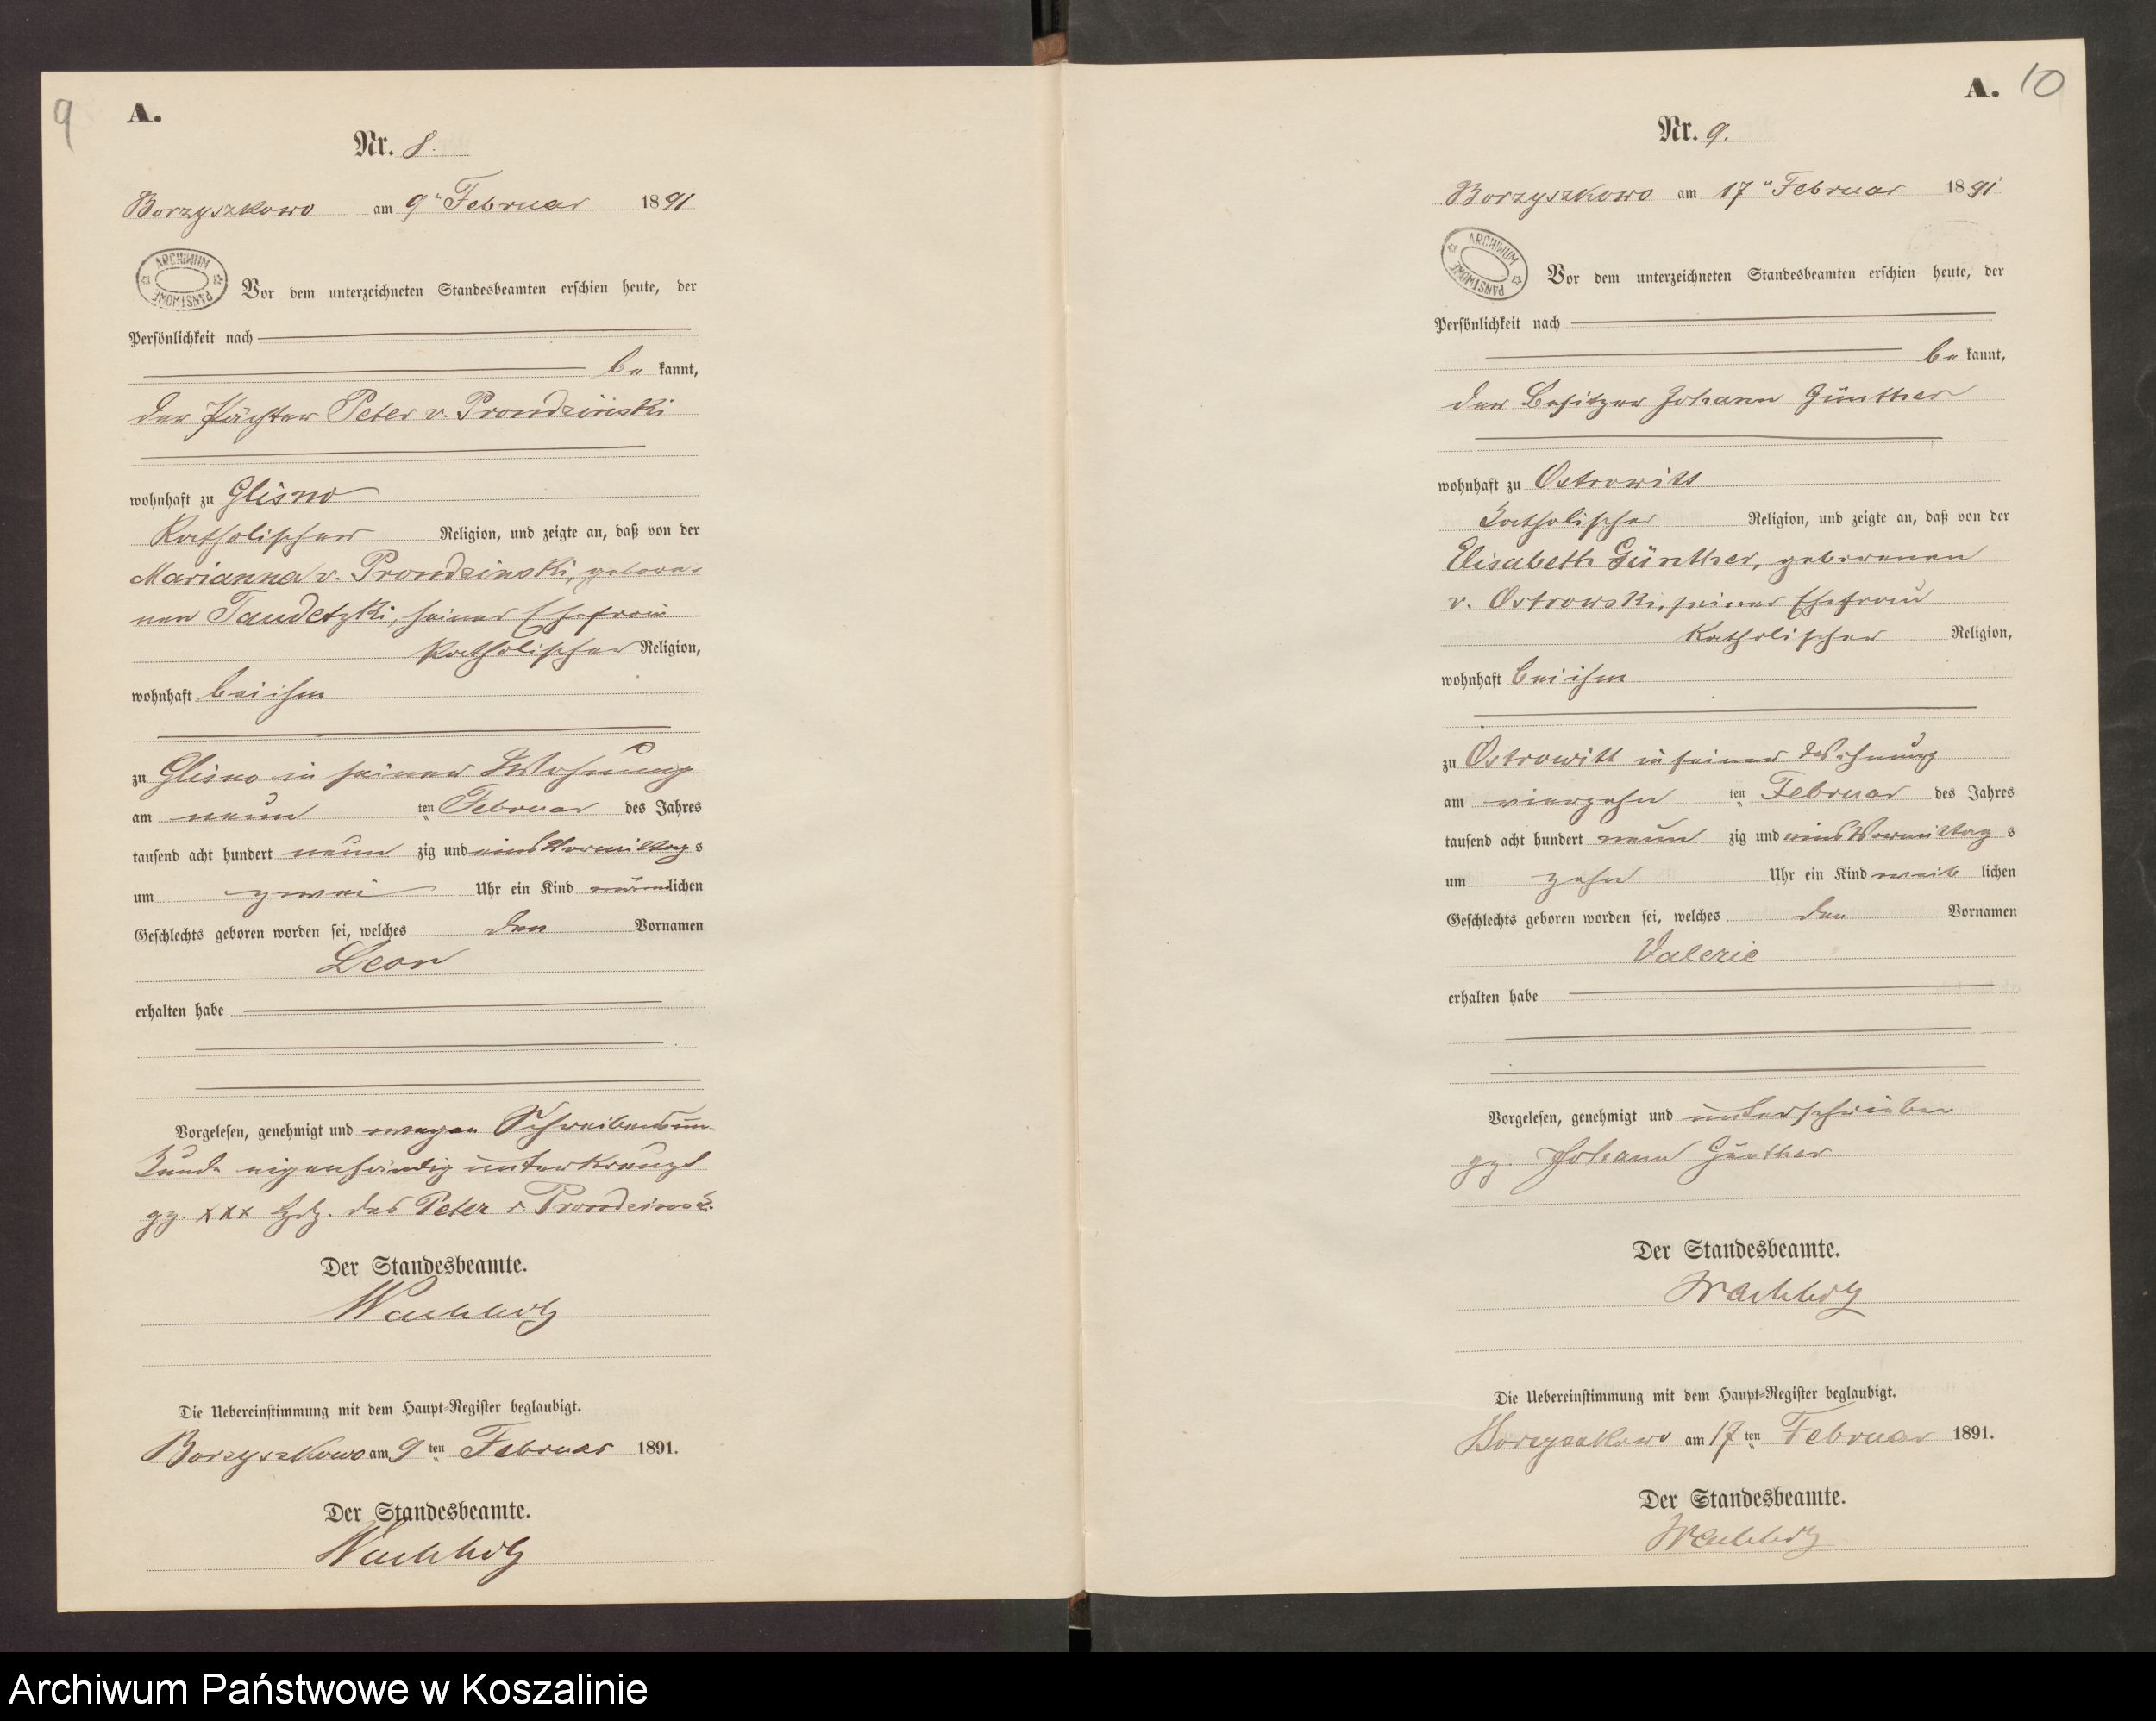 9
A.
Nr. 8.
Borzyszkowo am 9ⁿ Februar 1891
ARCHIWUM PAŃSTWOWE
Vor dem unterzeichneten Standesbeamten erschien heute, der
Persönlichkeit nach
be kannt,
der Pächter Peter v. Prondzinski
wohnhaft zu Glisno
Katholischer Religion, und zeigte an, daß von der
Marianna v. Prondzinski, gebore-
nen Taudetzki, seiner Ehefrau
Katholischer Religion,
wohnhaft bei ihm
zu Glisno in seiner Wohnung
am neun ten Februar des Jahres
tausend acht hundert neun zig und eins Vormittag s
um zwei Uhr ein Kind männlichen
Geschlechts geboren worden sei, welches den Vornamen
Leon
erhalten habe
Vorgelesen, genehmigt und wegen Schreibensun
kunde eigenhändig unterkreuzt
gz. xxx Hdz. des Peter v. Prondzinski
Der Standesbeamte.
Wachholz
Die Uebereinstimmung mit dem Haupt-Register beglaubigt.
Borzyszkowo am 9 ten Februar 1891.
Der Standesbeamte.
Wachholz
A. 10
Nr. 9.
Borzyszkowo am 17ⁿ Februar 1891
ARCHIWUM PAŃSTWOWE
Vor dem unterzeichneten Standesbeamten erschien heute, der
Persönlichkeit nach
be kannt,
der Besitzer Johann Günther
wohnhaft zu Ostrowitt
Katholischer Religion, und zeigte an, daß von der
Elisabeth Günther, geborenen
v. Ostrowski, seiner Ehefrau
Katholischer Religion,
wohnhaft bei ihm
zu Ostrowitt in seiner Wohnung
am vierzehn ten Februar des Jahres
tausend acht hundert neun zig und eins Vormittag s
um zehn Uhr ein Kind weib lichen
Geschlechts geboren worden sei, welches den Vornamen
Valerie
erhalten habe
Vorgelesen, genehmigt und unterschrieben
gz. Johann Günther
Der Standesbeamte.
Wachholz
Die Uebereinstimmung mit dem Haupt-Register beglaubigt.
Borzyszkowo am 17 ten Februar 1891.
Der Standesbeamte.
Wachholz
Archiwum Państwowe w Koszalinie